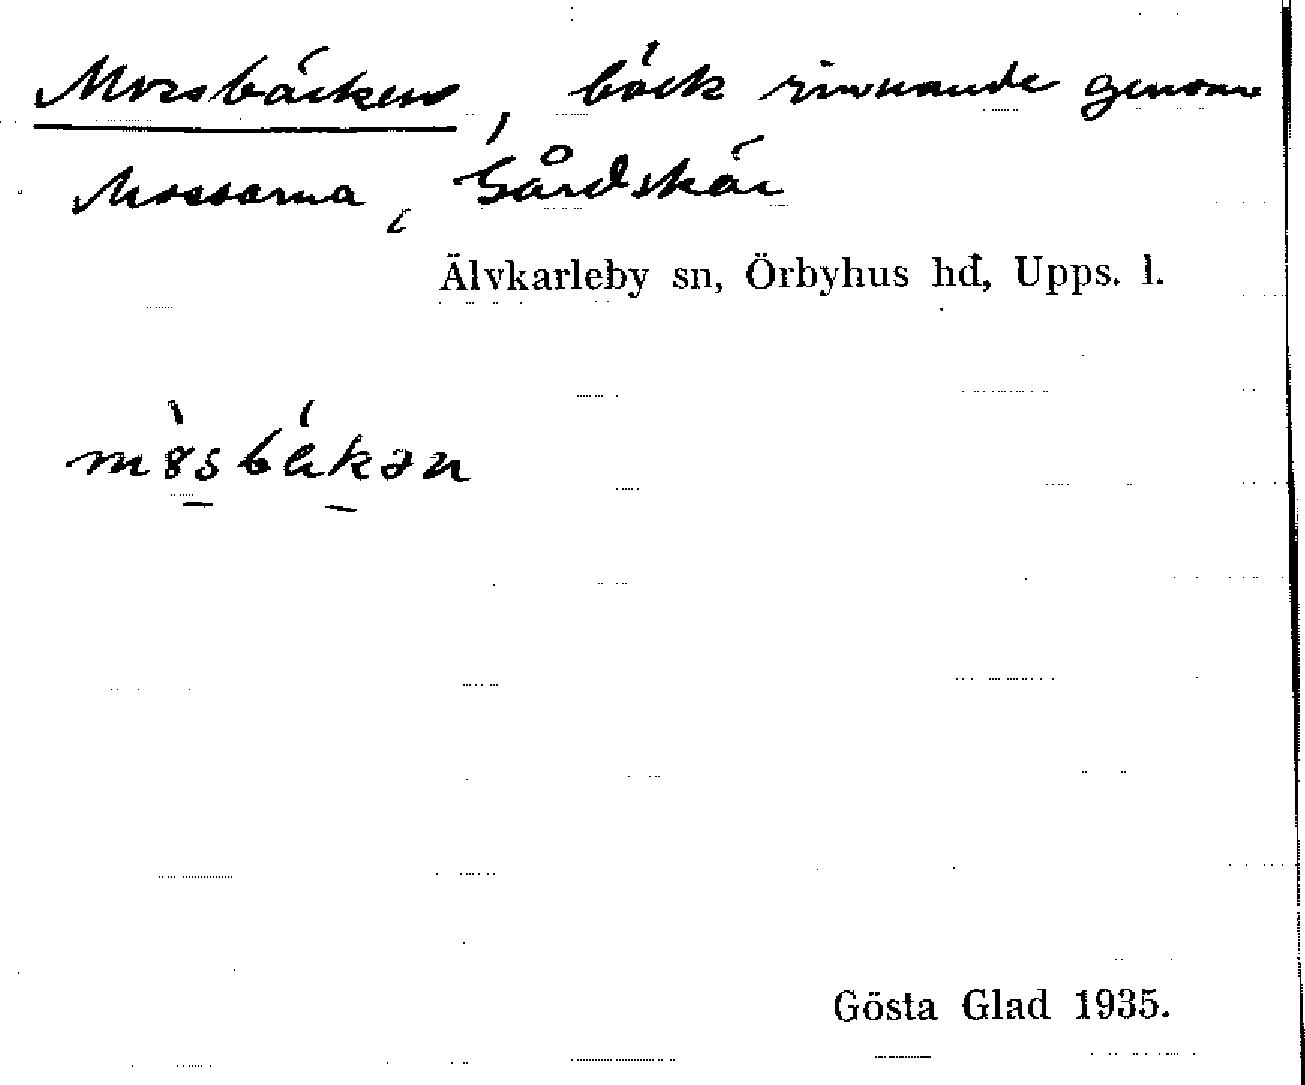 Mossbäcken, bäck rinnande genom
Mossarna, Gårdskär
Älvkarleby sn, Örbyhus hd, Upps. l.
Gösta Glad 1935.